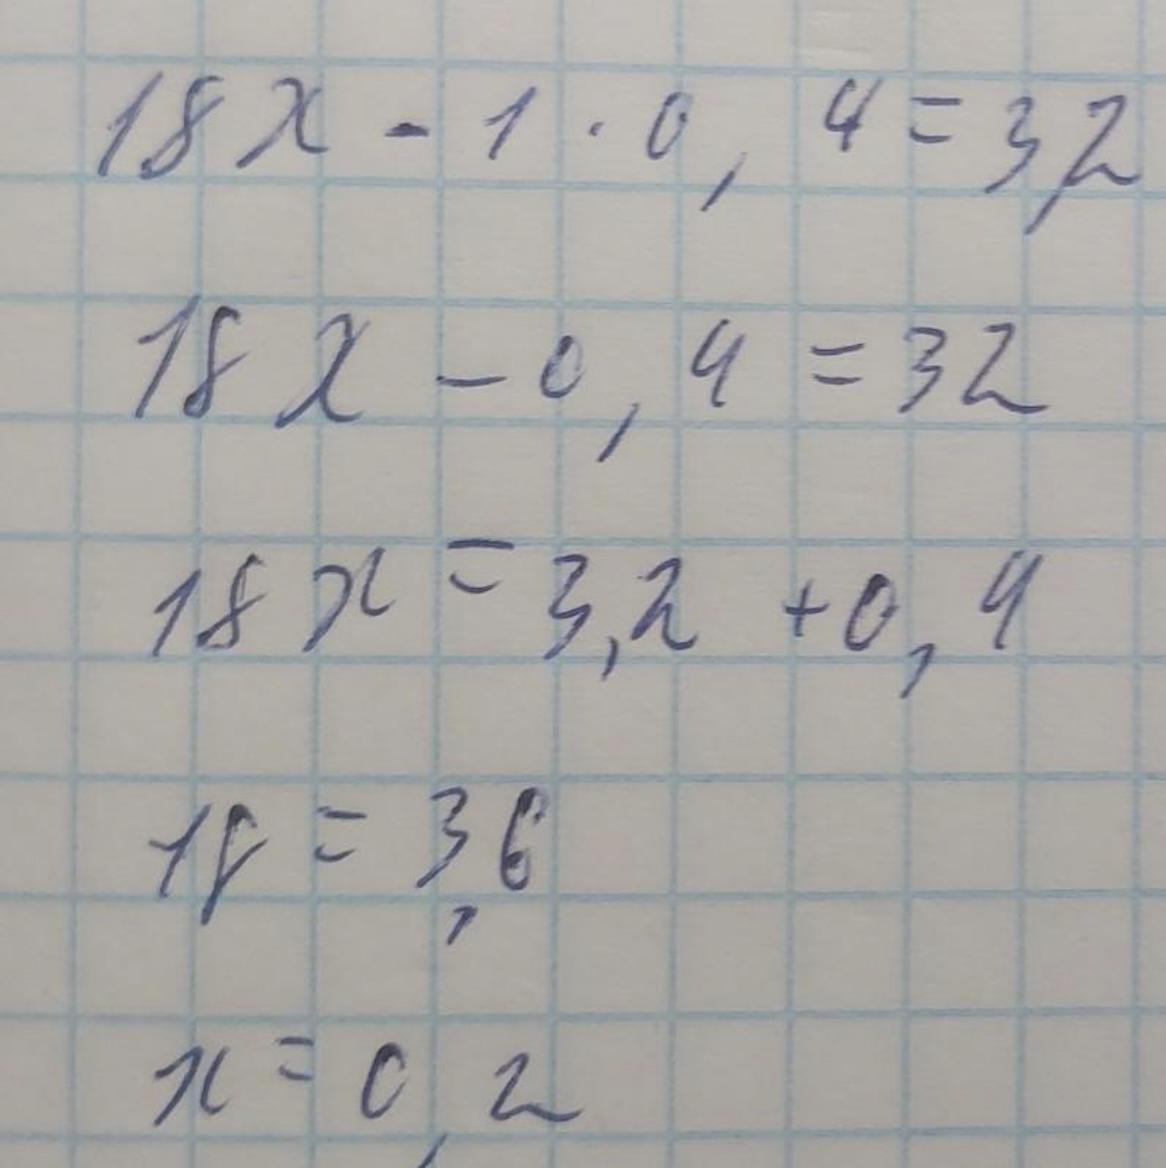 18x - 1 · 0,4 = 3,2
18x - 0,4 = 32
18x = 3,2 + 0,4
18 = 3,6
x = 0,2